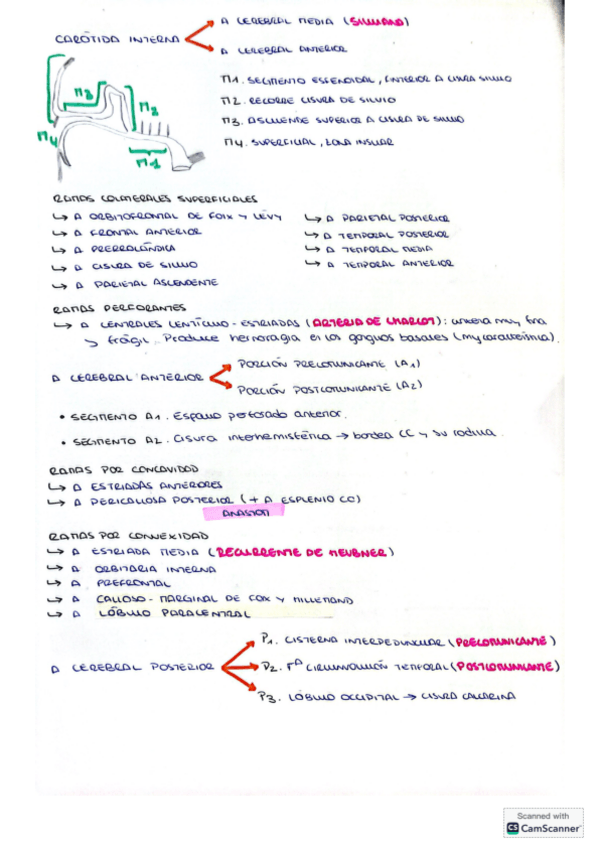 A CEREBRAL MEDIA (SILVIANO)
CARÓTIDA INTERNA
A CEREBRAL ANTERIOR
M3
M2
M4
M1
M1. SEGMENTO ESFENOIDAL, INTERIOR A CISURA SILVIO
M2. RECORRE CISURA DE SILVIO
M3. ASCIENTE SUPERIOR A CISURA DE SILVIO
M4. SUPERFICIAL, ZONA INSULAR
RAMAS COLATERALES SUPERFICIALES
↳ A ORBITOFRONTAL DE FOIX Y LÉVY
↳ A FRONTAL ANTERIOR
↳ A PRERROLÁNDICA
↳ A CISURA DE SILVIO
↳ A PARIETAL ASCENDENTE
↳ A PARIETAL POSTERIOR
↳ A TEMPORAL POSTERIOR
↳ A TEMPORAL MEDIA
↳ A TEMPORAL ANTERIOR
RAMAS PERFORANTES
↳ A CENTRALES LENTÍCULO-ESTRIADAS (ARTERIA DE CHARCOT): arteria muy fina
↳ frágil. Produce hemorragia en los ganglios basales (Mycoraneurisma).
A CEREBRAL ANTERIOR
PORCIÓN PRECOMUNICANTE (A1)
PORCIÓN POSTCOMUNICANTE (A2)
• SEGMENTO A1. Espacio perforado anterior.
• SEGMENTO A2. Cisura interhemisférica → bordea CC y su rodilla.
RAMAS POR CONCAVIDAD
↳ A ESTRIADAS ANTERIORES
↳ A PERICALLOSA POSTERIOR (+ A ESPLENIO CC)
ANASTOM
RAMAS POR CONVEXIDAD
↳ A ESTRIADA MEDIA (RECURRENTE DE HEUBNER)
↳ A ORBITARIA INTERNA
↳ A PREFRONTAL
↳ A CALLOSO-MARGINAL DE FOIX Y HILLEMAND
↳ A LÓBULO PARACENTRAL
A CEREBRAL POSTERIOR
P1. CISTERNA INTERPEDUNCULAR (PRECOMUNICANTE)
P2. 1ª CIRCUNVOLUCIÓN TEMPORAL (POSTCOMUNICANTE)
P3. LÓBULO OCCIPITAL → CISURA CALCARINA
Scanned with
CS CamScanner